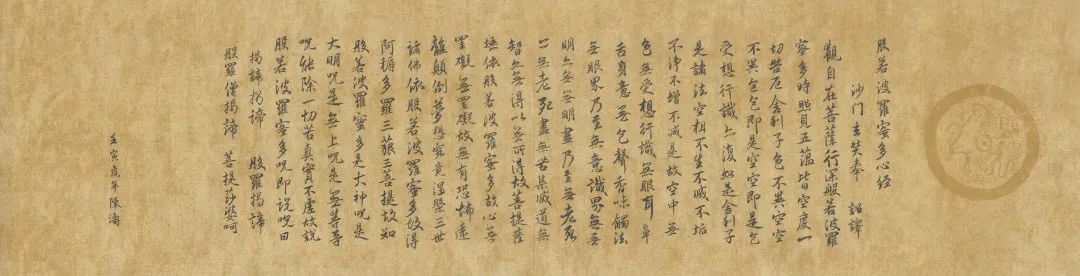 般若波羅蜜多心經
沙門玄奘奉 詔譯
觀自在菩薩行深般若波羅
蜜多時照見五蘊皆空度一
切苦厄舍利子色不異空空
不異色色即是空空即是色
受想行識亦復如是舍利子
是諸法空相不生不滅不垢
不淨不增不減是故空中無
色無受想行識無眼耳鼻
舌身意無色聲香味觸法
無眼界乃至無意識界無無
明亦無無明盡乃至無老死
亦無老死盡無苦集滅道無
智亦無得以無所得故菩提薩
埵依般若波羅蜜多故心無
罣礙無罣礙故無有恐怖遠
離顛倒夢想究竟涅槃三世
諸佛依般若波羅蜜多故得
阿耨多羅三藐三菩提故知
般若波羅蜜多是大神呪是
大明呪是無上呪是無等等
呪能除一切苦真實不虛故說
般若波羅蜜多呪即說呪曰
揭諦揭諦 般羅揭諦
般羅僧揭諦 菩提莎婆呵
壬寅虎年陳濤